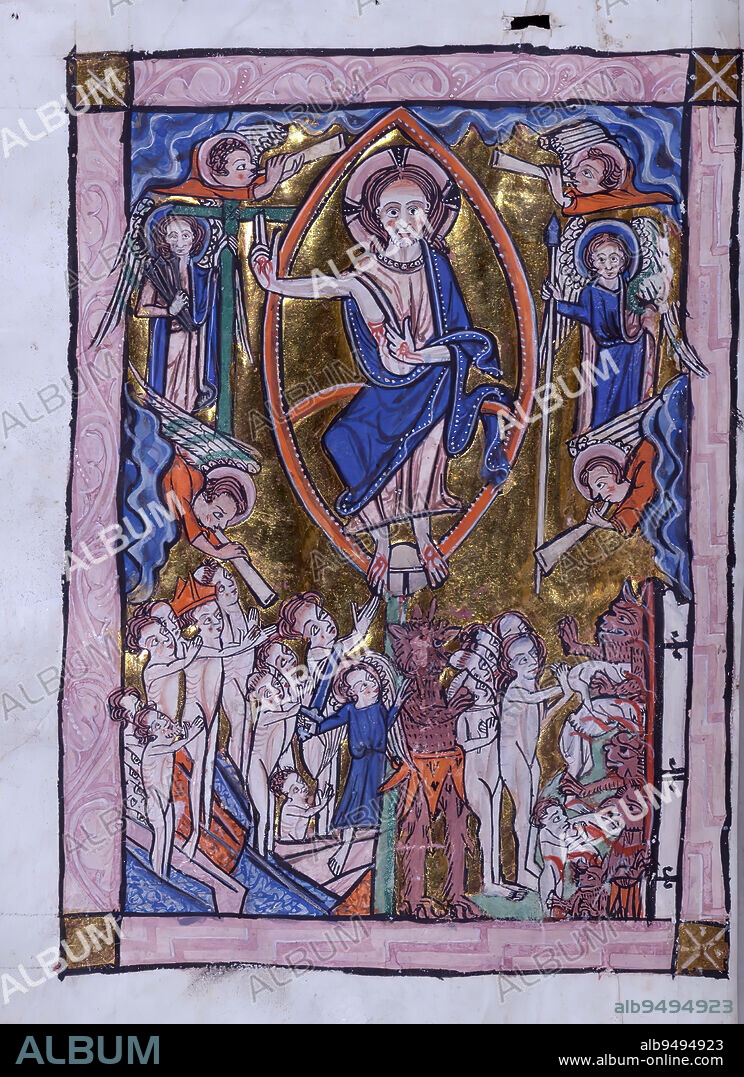 alb9494923
ALBUM
alb9494923
www.album-online.com